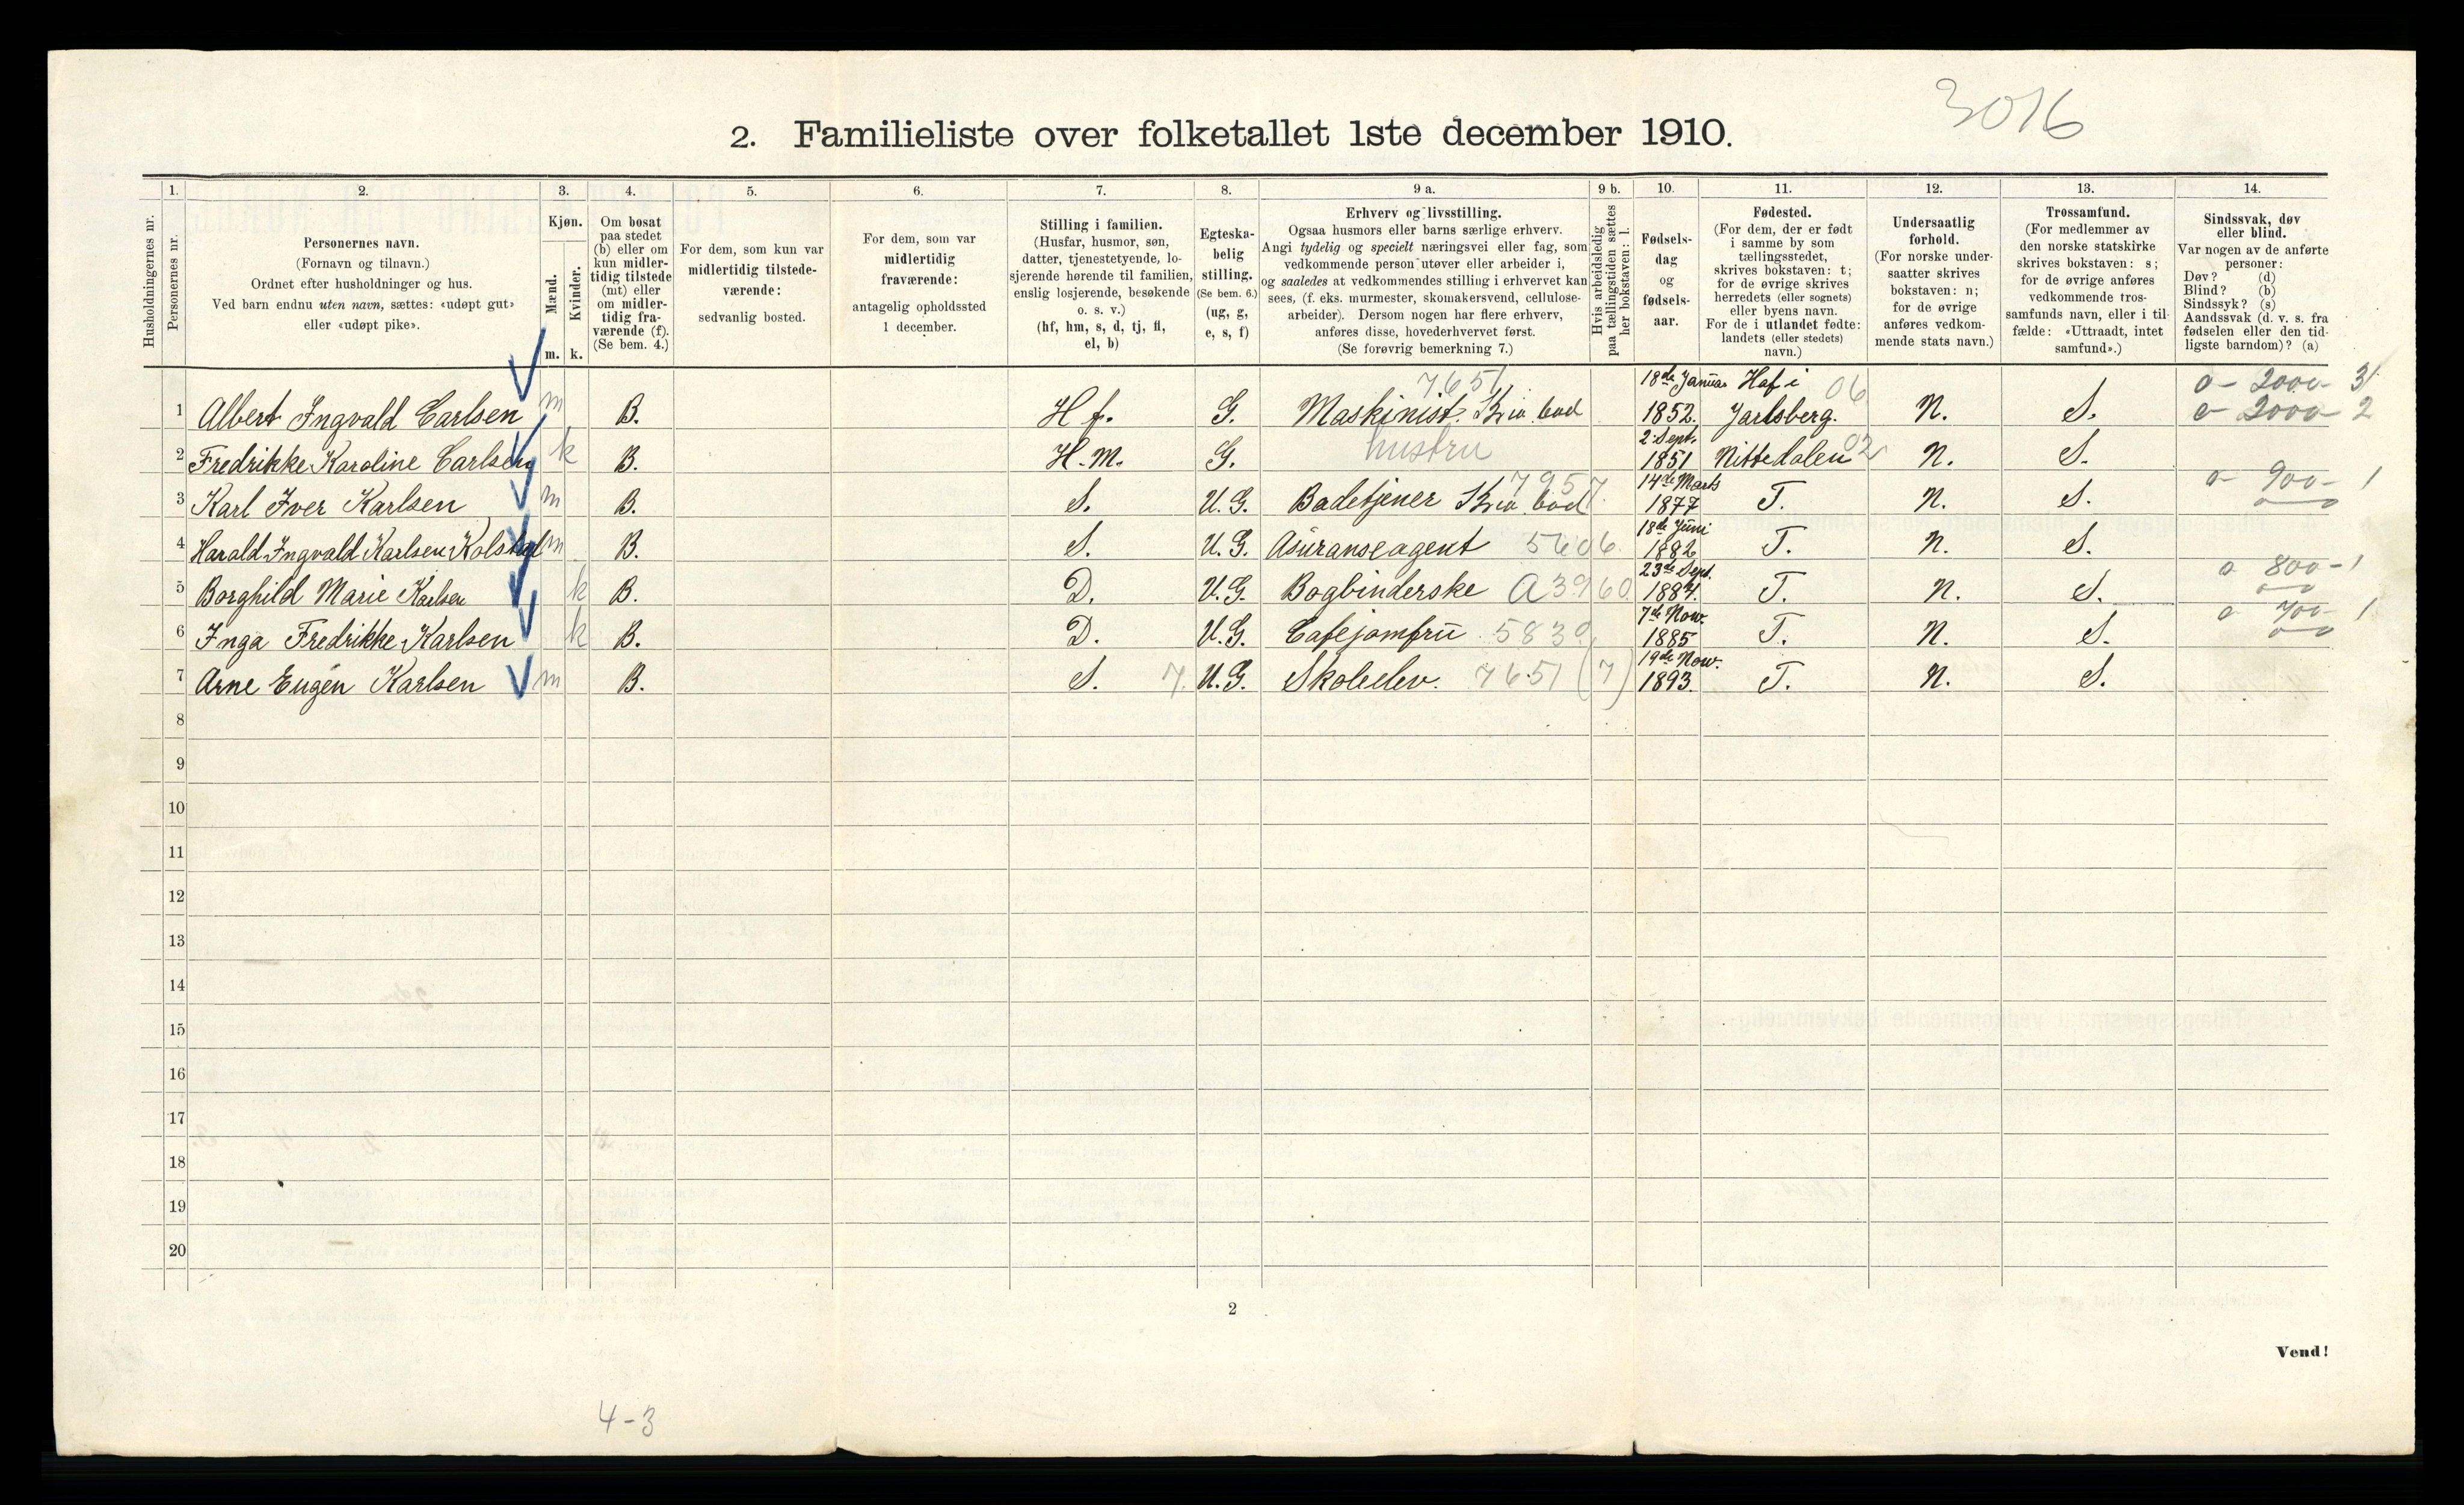 3016
2. Familieliste over folketallet 1ste december 1910.
1. 2. 3. 4. 5. 6. 7. 8. 9 a. 9 b. 10. 11. 12. 13. 14.
Husholdningernes nr.
Personernes nr.
Personernes navn.
(Fornavn og tilnavn.)
Ordnet efter husholdninger og hus.
Ved barn endnu uten navn, sættes: «udøpt gut»
eller «udøpt pike».
Kjøn.
Mænd.
Kvinder.
m. k.
Om bosat
paa stedet
(b) eller om
kun midler-
tidig tilstede
(mt) eller
om midler-
tidig fra-
værende (f).
(Se bem. 4.)
For dem, som kun var
midlertidig tilstede-
værende:
sedvanlig bosted.
For dem, som var
midlertidig
fraværende:
antagelig opholdssted
1 december.
Stilling i familien.
(Husfar, husmor, søn,
datter, tjenestetyende, lo-
sjerende hørende til familien,
enslig losjerende, besøkende
o. s. v.)
(hf, hm, s, d, tj, fl,
el, b)
Egteska-
belig
stilling.
(Se bem. 6.)
(ug, g,
e, s, f)
Erhverv og livsstilling.
Ogsaa husmors eller barns særlige erhverv.
Angi tydelig og specielt næringsvei eller fag, som
vedkommende person utøver eller arbeider i,
og saaledes at vedkommendes stilling i erhvervet kan
sees, (f. eks. murmester, skomakersvend, cellulose-
arbeider). Dersom nogen har flere erhverv,
anføres disse, hovederhvervet først.
(Se forøvrig bemerkning 7.)
Hvis arbeidsledig
paa tællingstiden sættes
her bokstaven: l.
Fødsels-
dag
og
fødsels-
aar.
Fødested.
(For dem, der er født
i samme by som
tællingsstedet,
skrives bokstaven: t;
for de øvrige skrives
herredets (eller sognets)
eller byens navn.
For de i utlandet fødte:
landets (eller stedets)
navn.)
Undersaatlig
forhold.
(For norske under-
saatter skrives
bokstaven: n;
for de øvrige
anføres vedkom-
mende stats navn.)
Trossamfund.
(For medlemmer av
den norske statskirke
skrives bokstaven: s;
for de øvrige anføres
vedkommende tros-
samfunds navn, eller i til-
fælde: «Uttraadt, intet
samfund».)
Sindssvak, døv
eller blind.
Var nogen av de anførte
personer:
Døv? (d)
Blind? (b)
Sindssyk? (s)
Aandssvak (d. v. s. fra
fødselen eller den tid-
ligste barndom)? (a)
7651 18de Januar Haf i 06 0- 2000- 3
1 Albert Ingvald Carlsen m B. H f. G. Maskinist. Kria bad 1852. Jarlsberg. N. S. 0- 2000- 2
2 Sept.
2 Fredrikke Karoline Carlsen k B. H. M. G. hustru 1851 Nittedalen 02 N. S.
7957. 14de Marts 0- 900- 1
3 Karl Iver Karlsen m B. S. U. G. Badetjener Kria bad 1877 T. N. S.
18de Juni
4 Harald Ingvald Karlsen m B. S. U. G. Asuranseagent 5606. 1882 T. N. S.
23de Sept. 0 800- 1
5 Borghild Marie Karlsen k B. D. U. G. Bogbinderske A 3960 1884. T. N. S.
7de Nov. 0- 700- 1
6 Inga Fredrikke Karlsen k B. D. U. G. Cafejomfru 5839 1885 T. N. S.
19de Nov.
7 Arne Eugen Karlsen m B. S. 7. U. G. Skoleelev. 7651 (7) 1893. T. N. S.
8
9
10
11
12
13
14
15
16
17
18
19
20
2
Vend!
4-3